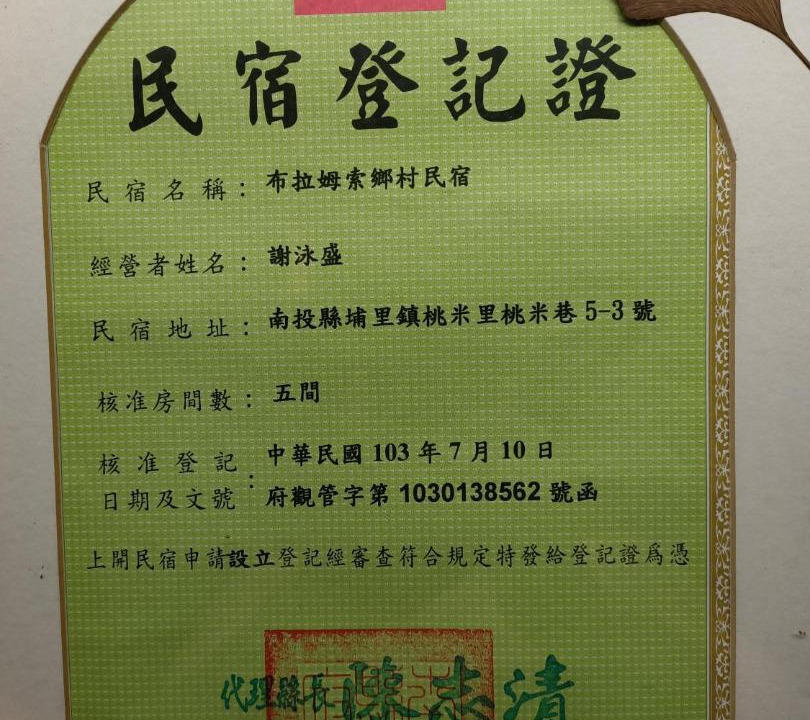 民宿登記證
民宿名稱：布拉姆索鄉村民宿
經營者姓名：謝泳盛
民宿地址：南投縣埔里鎮桃米里桃米巷 5-3 號
核准房間數：五間
核准登記
日期及文號：
中華民國 103 年 7 月 10 日
府觀管字第 1030138562 號函
上開民宿申請設立登記經審查符合規定特發給登記證為憑
代理縣長 陳志清